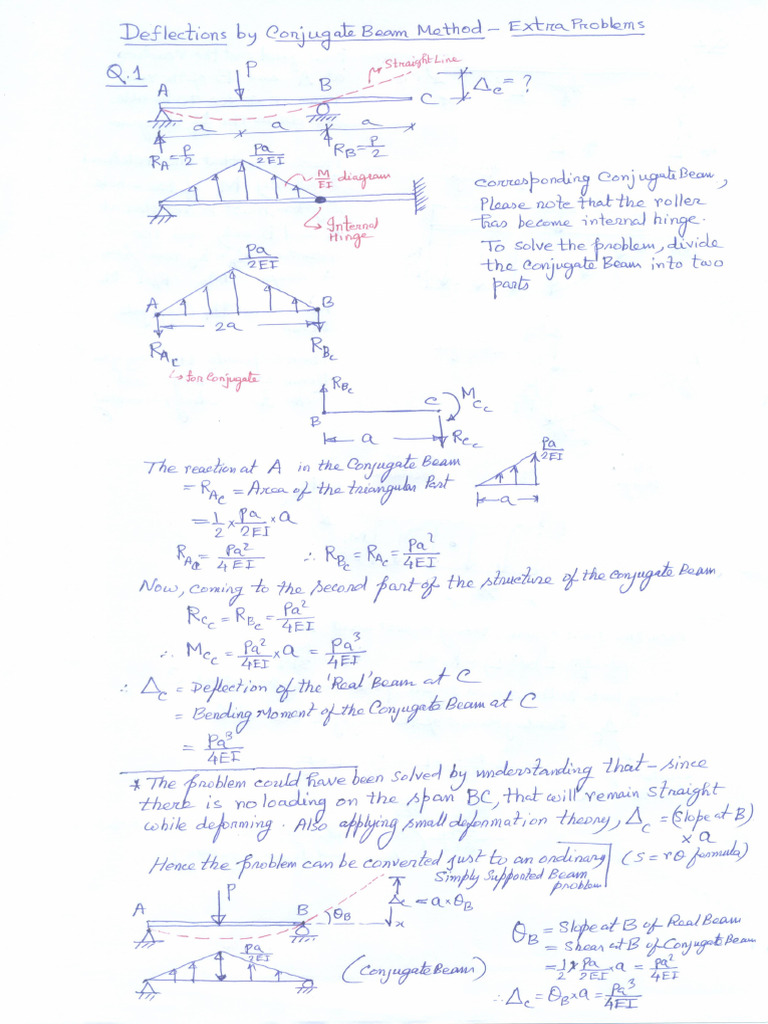 Deflections by Conjugate Beam Method – Extra Problems
Q.1
P
A
B
C
Straight Line
Δc = ?
a
a
a
R_A = P/2
Pa/2EI
R_B = P/2
M/EI diagram
Internal
Hinge
corresponding Conjugate Beam,
Please note that the roller
has become internal hinge.
To solve the problem, divide
the Conjugate Beam into two
parts
Pa/2EI
A
B
2a
R_Ac
R_Bc
for Conjugate
R_Bc
B
C
M_Cc
a
R_Cc
The reaction at A in the Conjugate Beam
= R_Ac = Area of the triangular Part
Pa/2EI
a
= 1/2 × Pa/2EI × a
R_Ac = Pa²/4EI ∴ R_Bc = R_Ac = Pa²/4EI
Now, coming to the second part of the structure of the conjugate Beam
R_Cc = R_Bc = Pa²/4EI
∴ M_Cc = Pa²/4EI × a = Pa³/4EI
∴ Δc = Deflection of the 'Real' Beam at C
= Bending Moment of the Conjugate Beam at C
= Pa³/4EI
* The problem could have been solved by understanding that – since
there is no loading on the span BC, that will remain straight
while deforming. Also applying small deformation theory, Δc = (Slope at B)
× a
Hence the problem can be converted just to an ordinary (S = rθ formula)
Simply Supported Beam
problem
P
A
B
θ_B
Δc = a × θ_B
Pa/2EI
(Conjugate Beam)
θ_B = Slope at B of Real Beam
= Shear at B of Conjugate Beam
= 1/2 × Pa/2EI × a = Pa²/4EI
∴ Δc = θ_B × a = Pa³/4EI